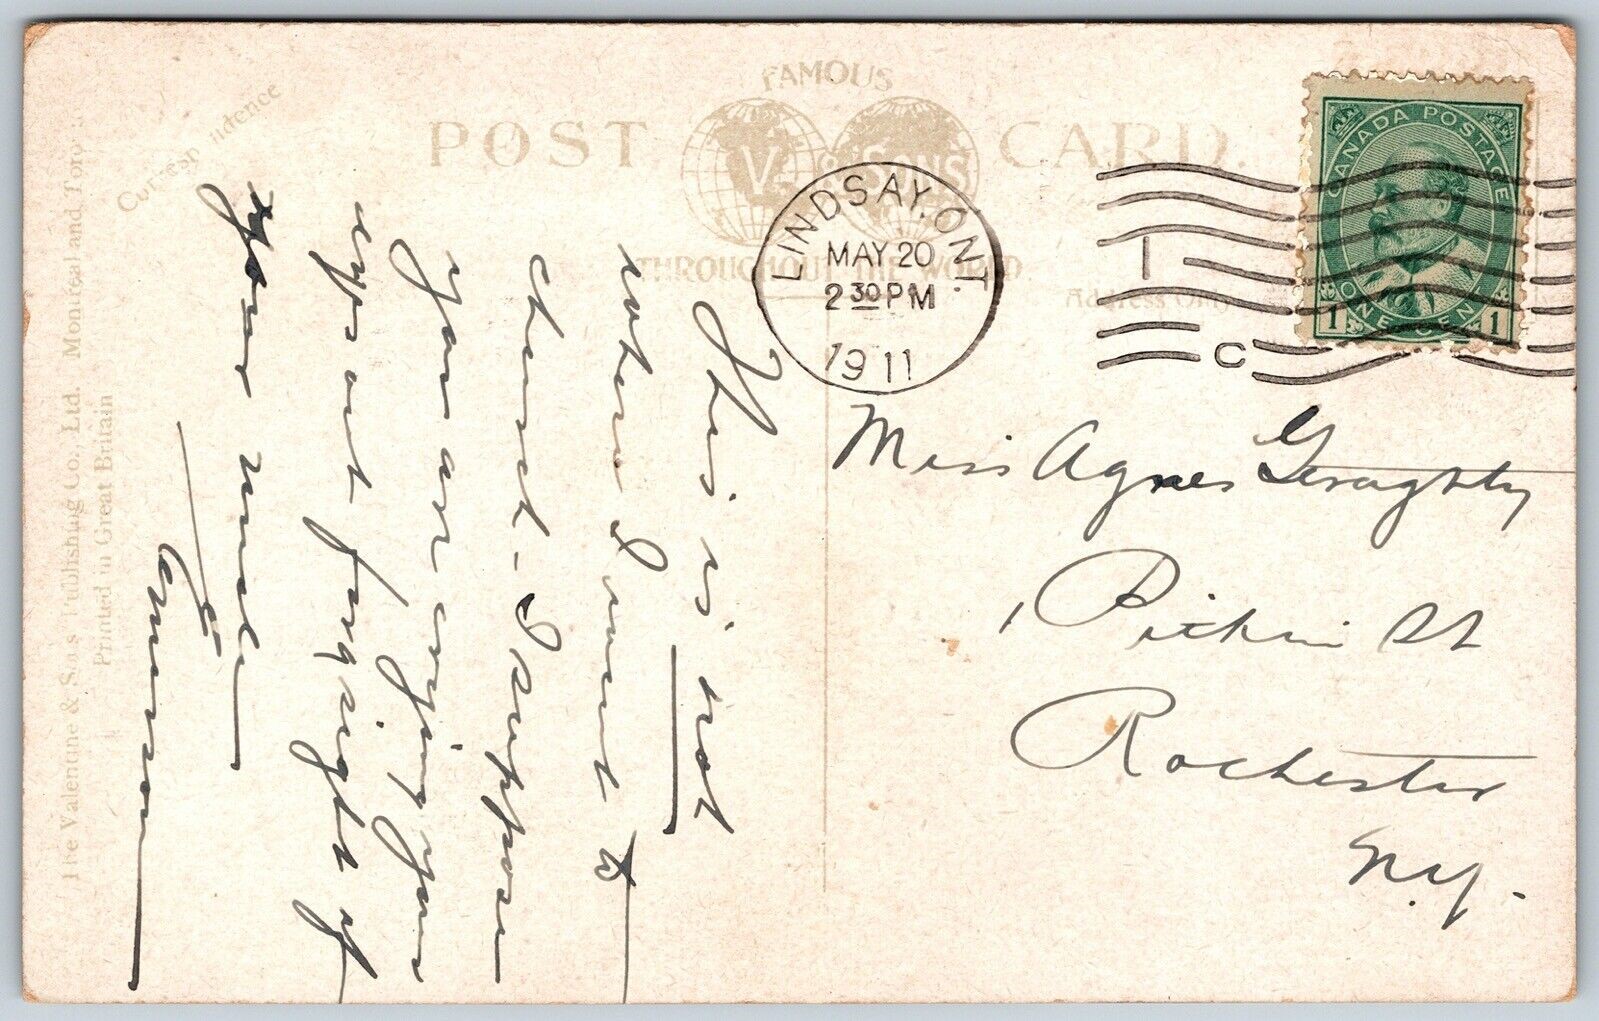 FAMOUS
POST CARD.
V. & SONS
THROUGHOUT THE WORLD
Correspondence
Address Only
CANADA POSTAGE
ONE CENT
1 1
LINDSAY, ONT.
MAY 20
2 30 PM
1911
C
This is not
where I went to
church - I suppose
you are crying your
eyes out for sight of
your uncle
Miss Agnes Geraghty
Pitkin St
Rochester
N.Y.
The Valentine & Sons Publishing Co., Ltd. Montreal and Toronto
Printed in Great Britain